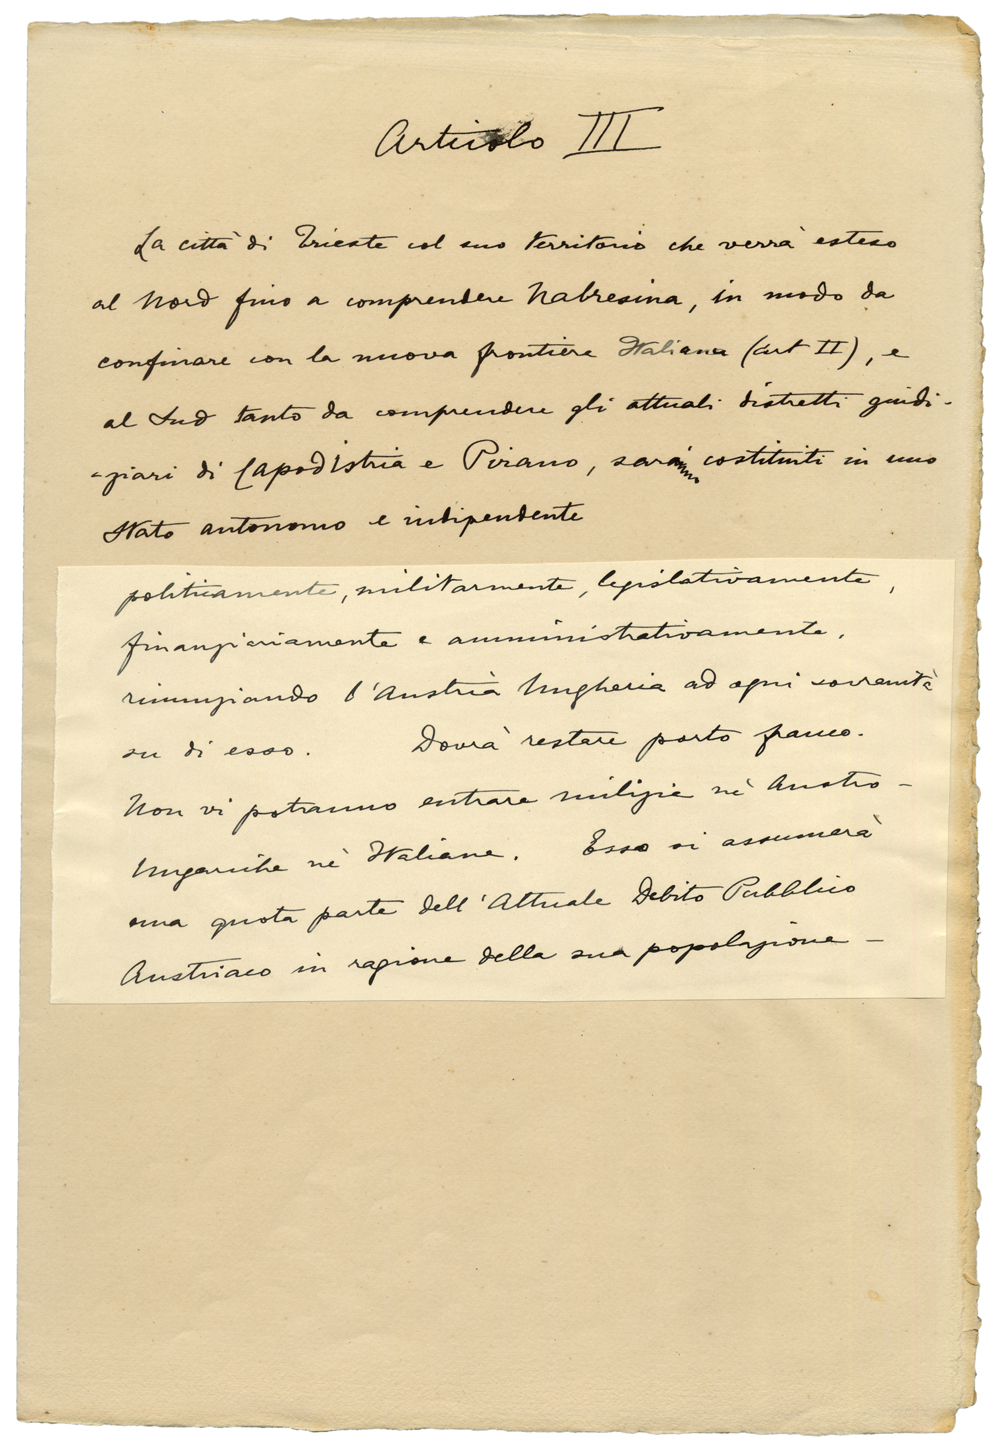 Articolo III
La città di Trieste col suo territorio che verrà esteso
al Nord fino a comprendere Nabresina, in modo da
confinare con la nuova frontiera Italiana (art II), e
al Sud tanto da comprendere gli attuali distretti giudi-
-ziari di Capodistria e Pirano, saranno costituiti in uno
Stato autonomo e indipendente
politicamente, militarmente, legislativamente,
finanziariamente e amministrativamente,
rinunziando l'Austria Ungheria ad ogni sovranità
su di esso. Dovrà restare porto franco.
Non vi potranno entrare milizie nè Austro-
Ungariche nè Italiane. Esso si assumerà
una quota parte dell'Attuale Debito Pubblico
Austriaco in ragione della sua popolazione-